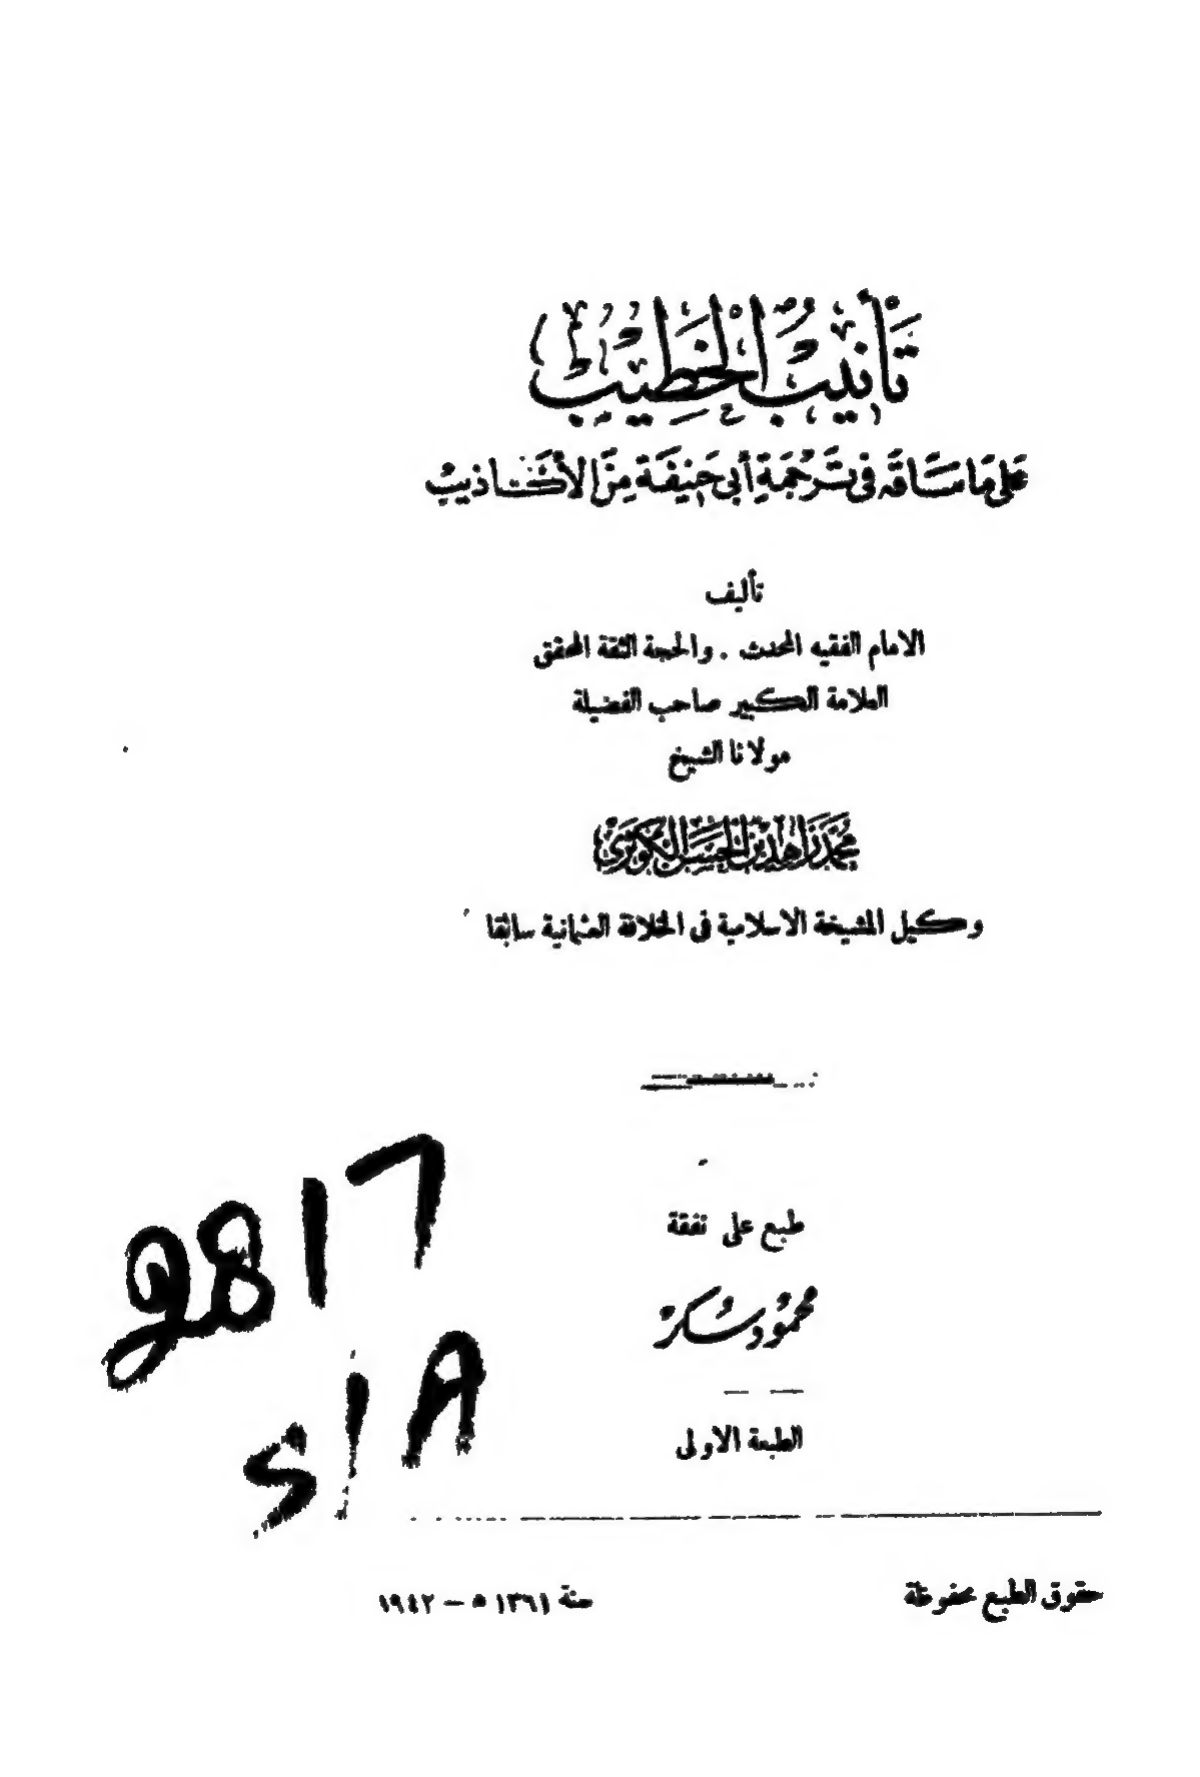 تأنيب الخطيب
على ما ساقه في ترجمة أبي حنيفة من الأكاذيب
تأليف
الامام الفقيه المحدث . والحجة الثقة المحقق
العلامة الكبير صاحب الفضيلة
مولانا الشيخ
محمد زاهد بن الحسن الكوثري
وكيل المشيخة الاسلامية فى الخلافة العثمانية سابقا
طبع على نفقة
محمود سكر
الطبعة الاولى
حقوق الطبع محفوظة
سنة ١٣٦١ ه — ١٩٤٢
2817
S/A